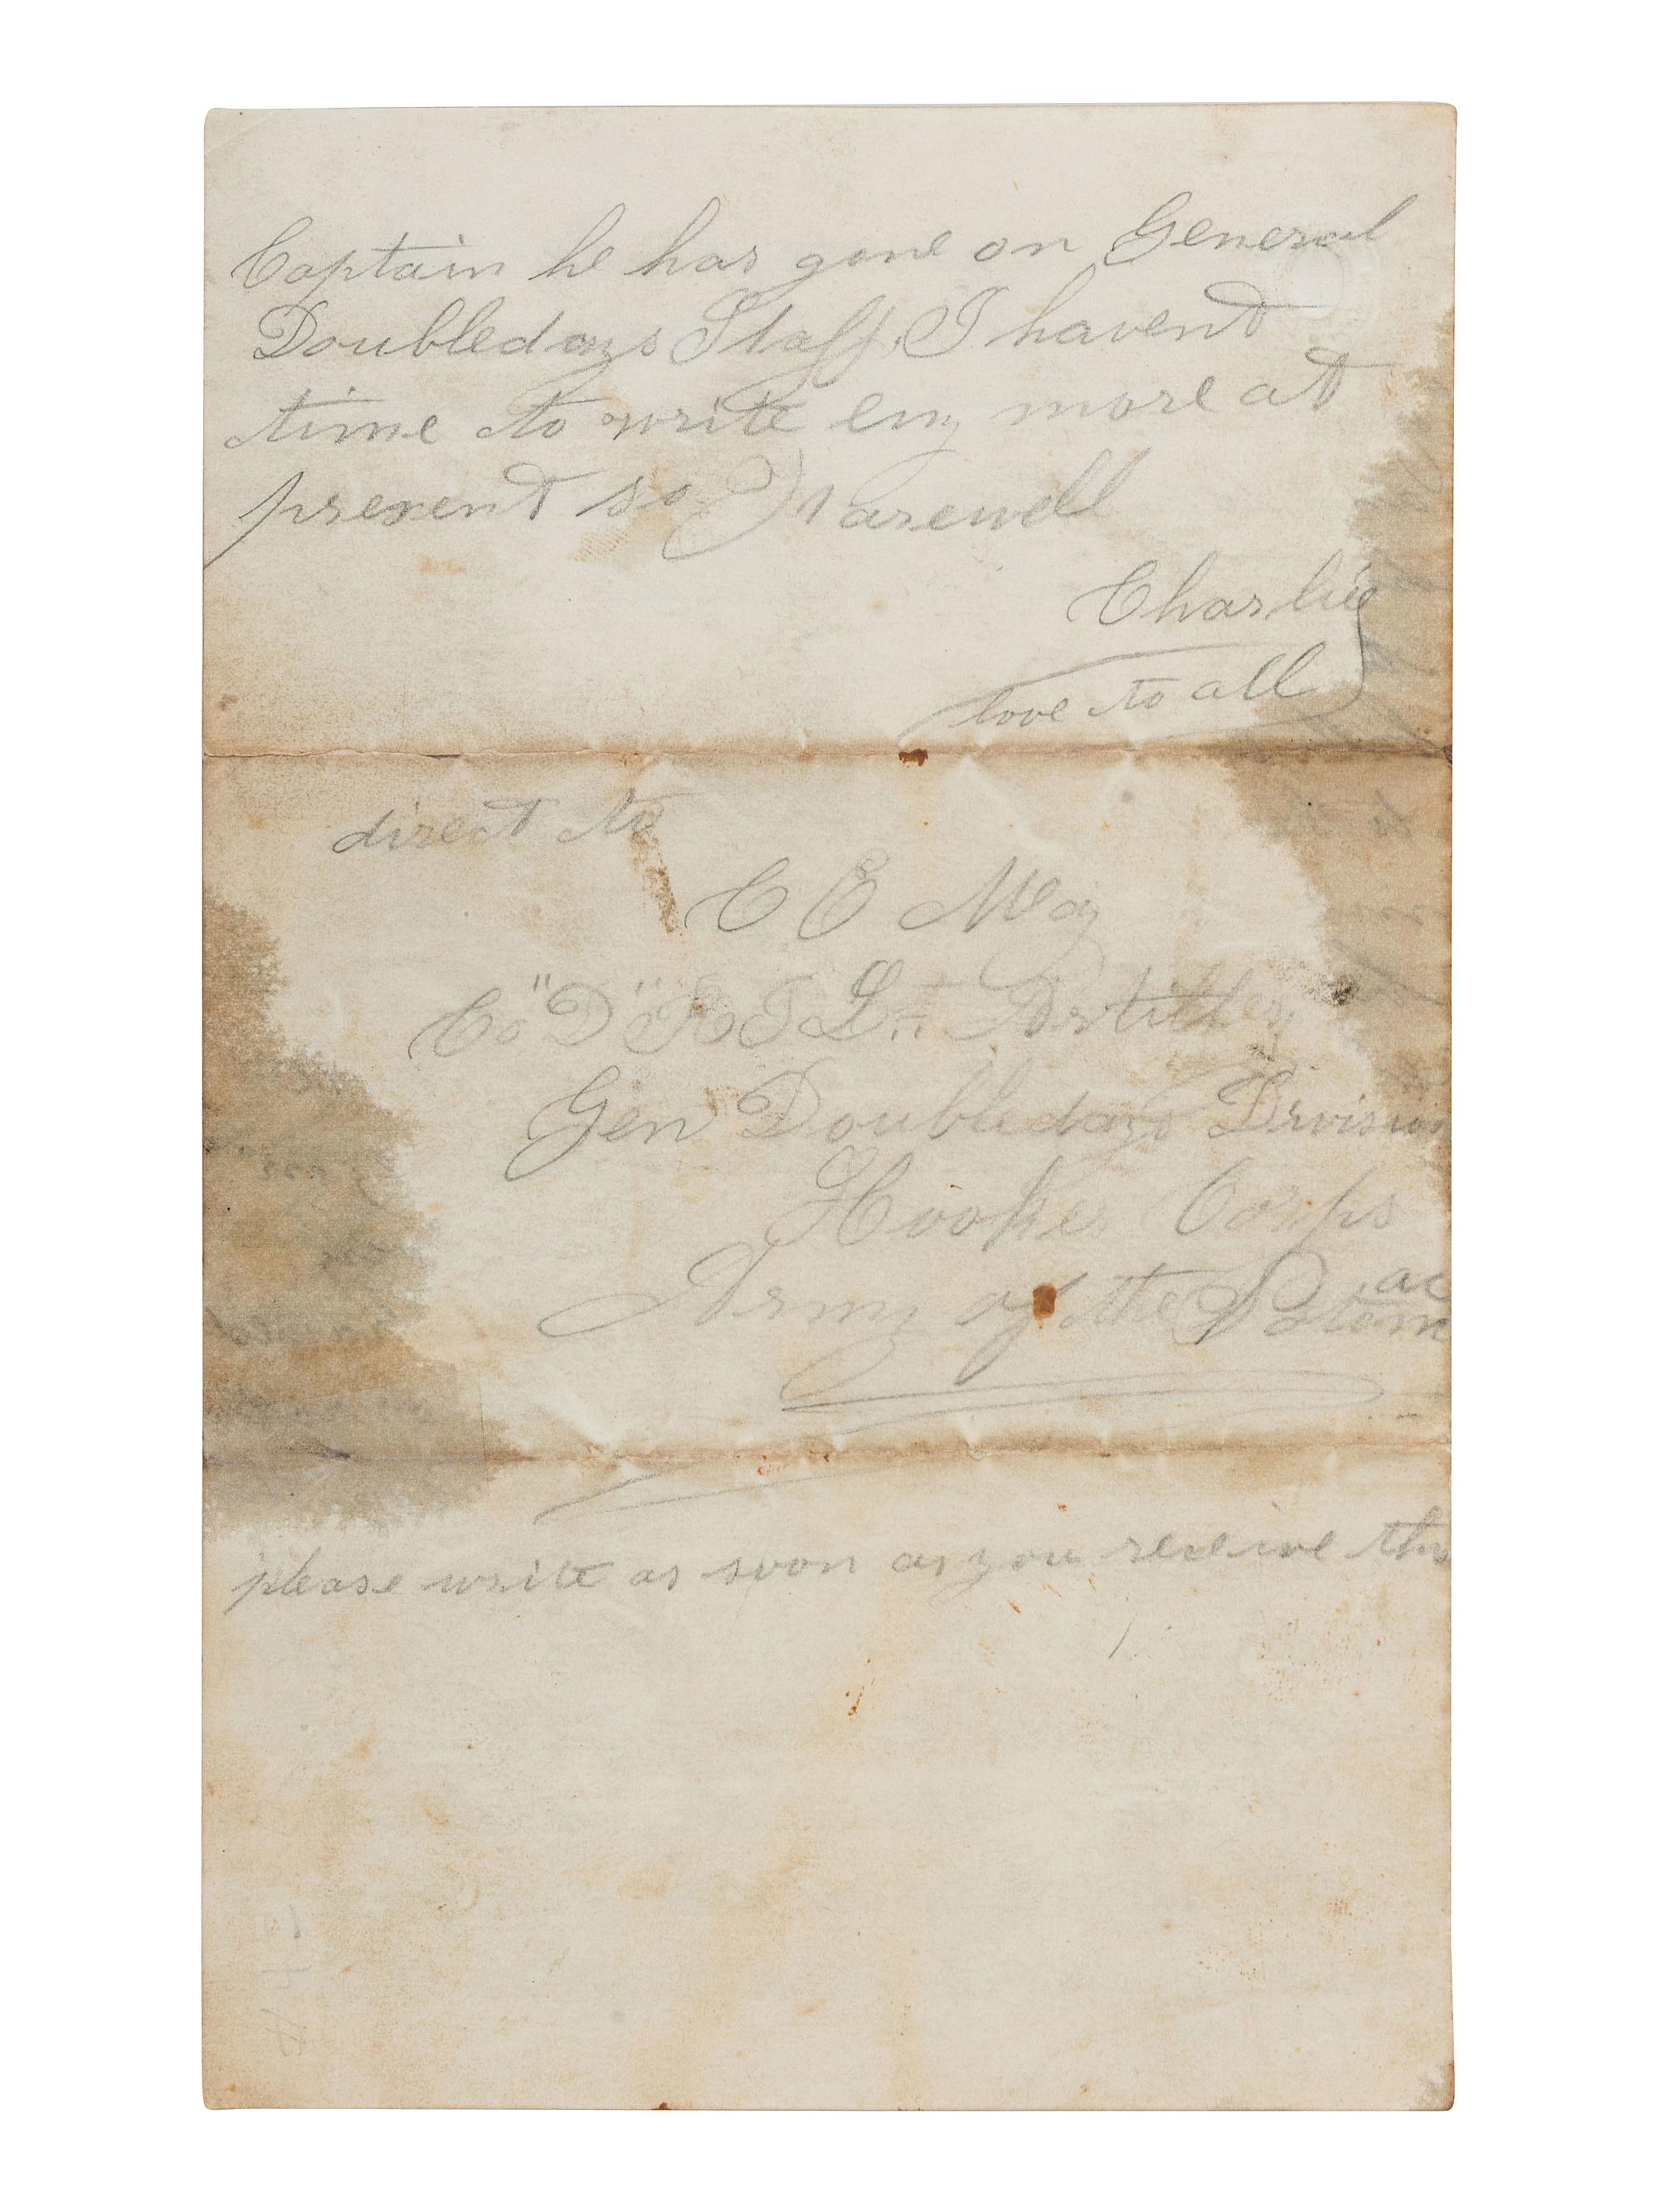 Captain he has gone on General
Doubledays Staff, I havent
time to write eny more at
present so Farewell
Charlie
love to all
direct to
C E May
Co "D" R I Lt Artillery
Gen Doubledays Division
Hooker Corps
Army of the Potomac
please write as soon as you receive this